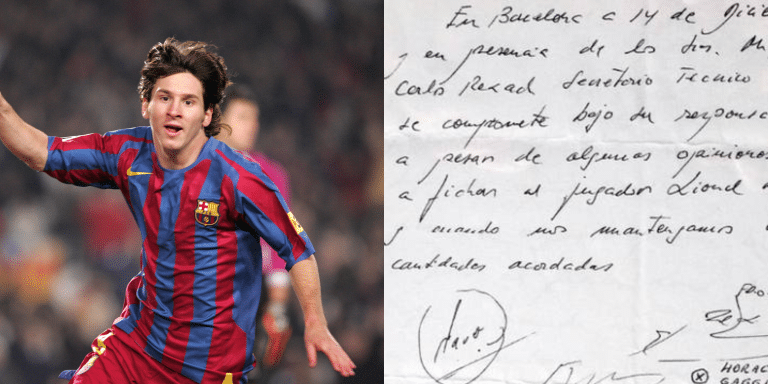 En Barcelona a 14 de Dicie
y en presencia de los Srs. Mi
Carlo Rexach Secretario Técnico
se compromete bajo su responsa
a pesar de algunas opiniones
a fichar al jugador Lionel
y cuando nos mantengamos
cantidades acordadas
HORAC
GAGG